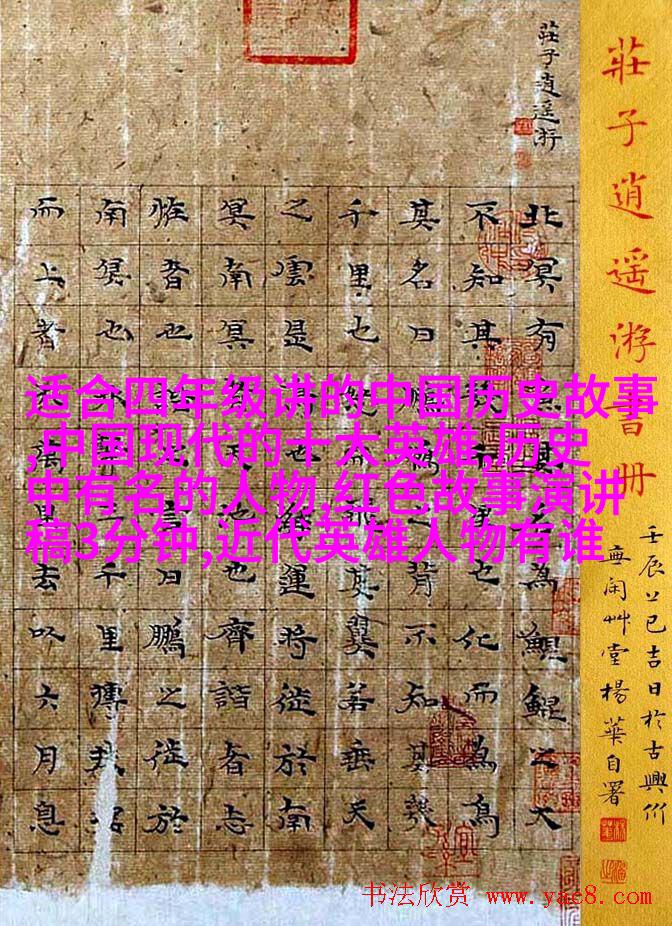 莊子逍遥游
北冥有魚其名為鯤鯤之大
不知其幾千里也化而為鳥
其名曰鵬鵬之背不知其幾
千里也怒而飛其翼若垂天
之雲是鳥也海運將徙於南
冥南冥者天池也齊諧者志
恠者也諧之言曰鵬之徙於
南冥也水擊三千里摶扶搖
而上者九萬里去以六月息
莊子逍遥游書冊
壬辰上巳吉日於古興州
無闲艸堂楊華自署
适合四年级讲的中国历史故事
,中国现代的十大英雄,历史
中有名的人物,红色故事演讲
稿3分钟,近代英雄人物有谁
书法欣赏 www.yac8.com